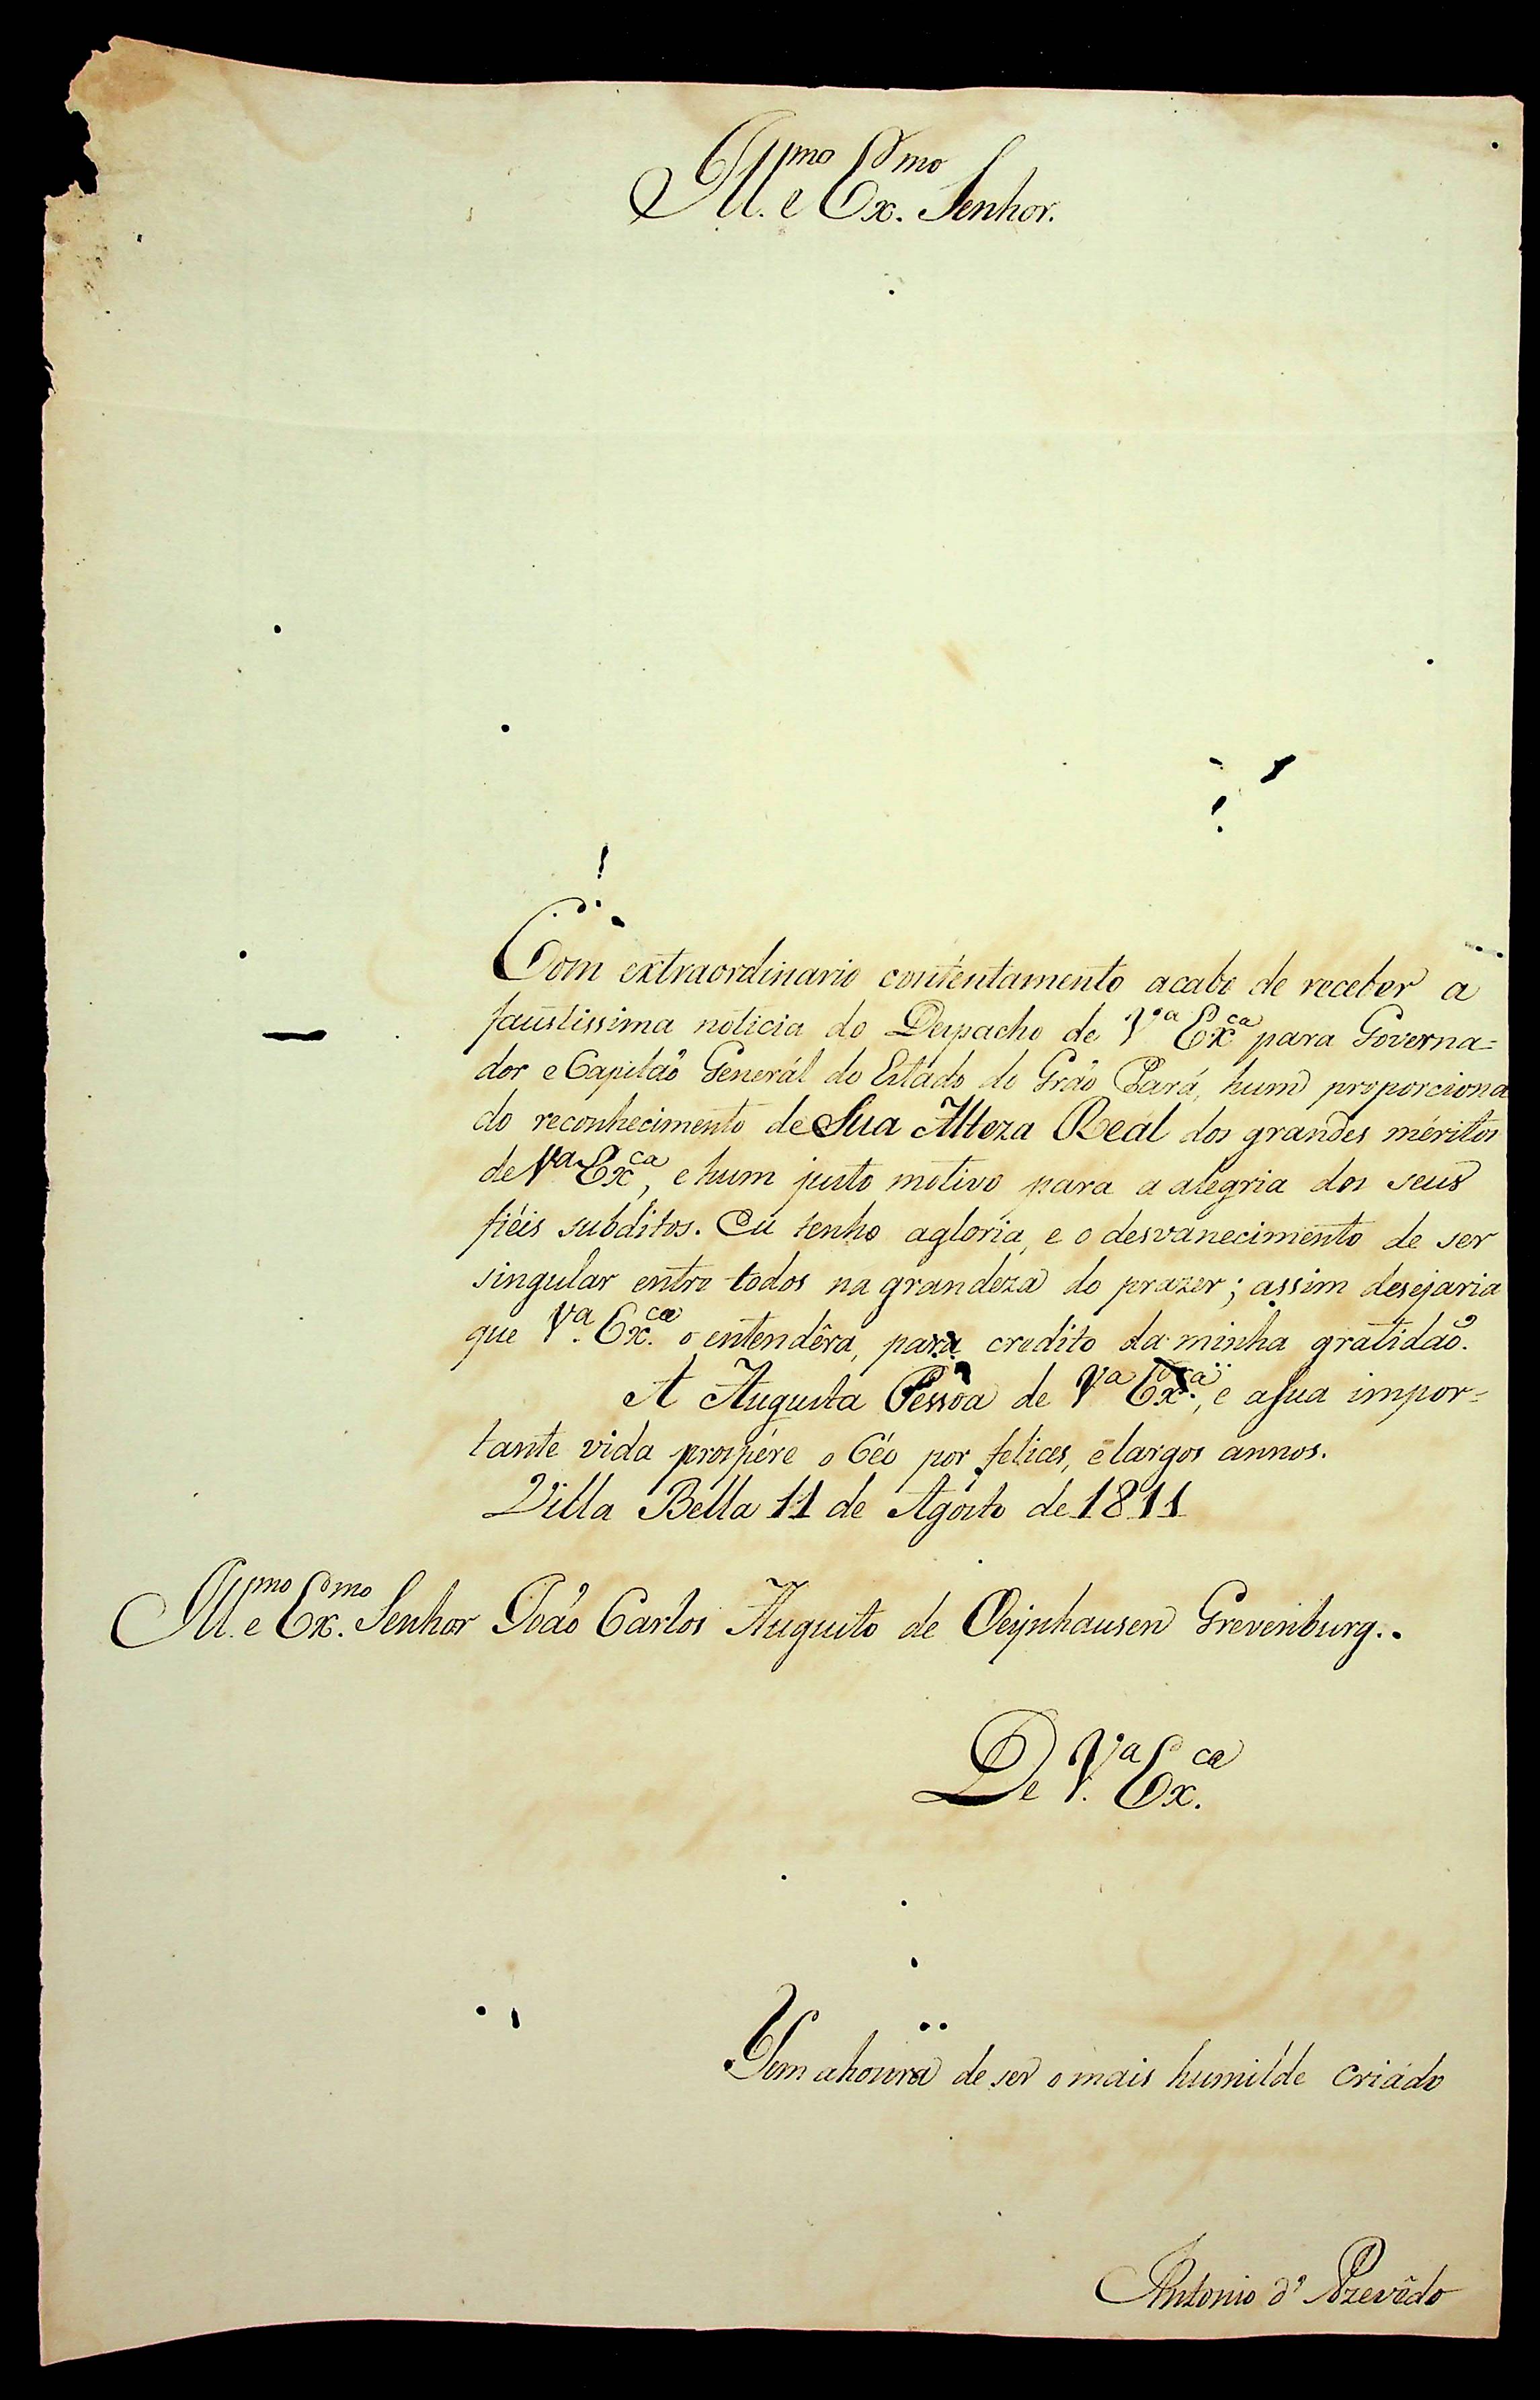 Ill.mo e Ex.mo Senhor.
Com extraordinario contentamento acabo de receber a
faustissima noticia do Despacho de V.a Ex.ca para Governa=
dor e Capitaõ Generál do Estado do Graõ Pará, hum proporciona
do reconhecimento de Sua Alteza Reál dos grandes méritos
de V.a Ex.ca, e hum justo motivo para a alegria dos seus
fiéis subditos. Eu tenho agloria, e o desvanecimento de ser
singular entre todos na grandeza do prazer; assim desejaria
que V.a Ex.ca o entendêra, para credito da minha gratidaõ.
A Augusta Pessoa de V.a Ex.ca, e asua impor=
tante vida prospére o Céo por felices, e largos annos.
Villa Bella 11 de Agosto de 1811
Ill.mo e Ex.mo Senhor Joaõ Carlos Augusto de Oeijnhausen Grevenburg..
De V.a Ex.ca
Tem ahonra de ser o mais humilde criádo
Antonio d' Azevêdo